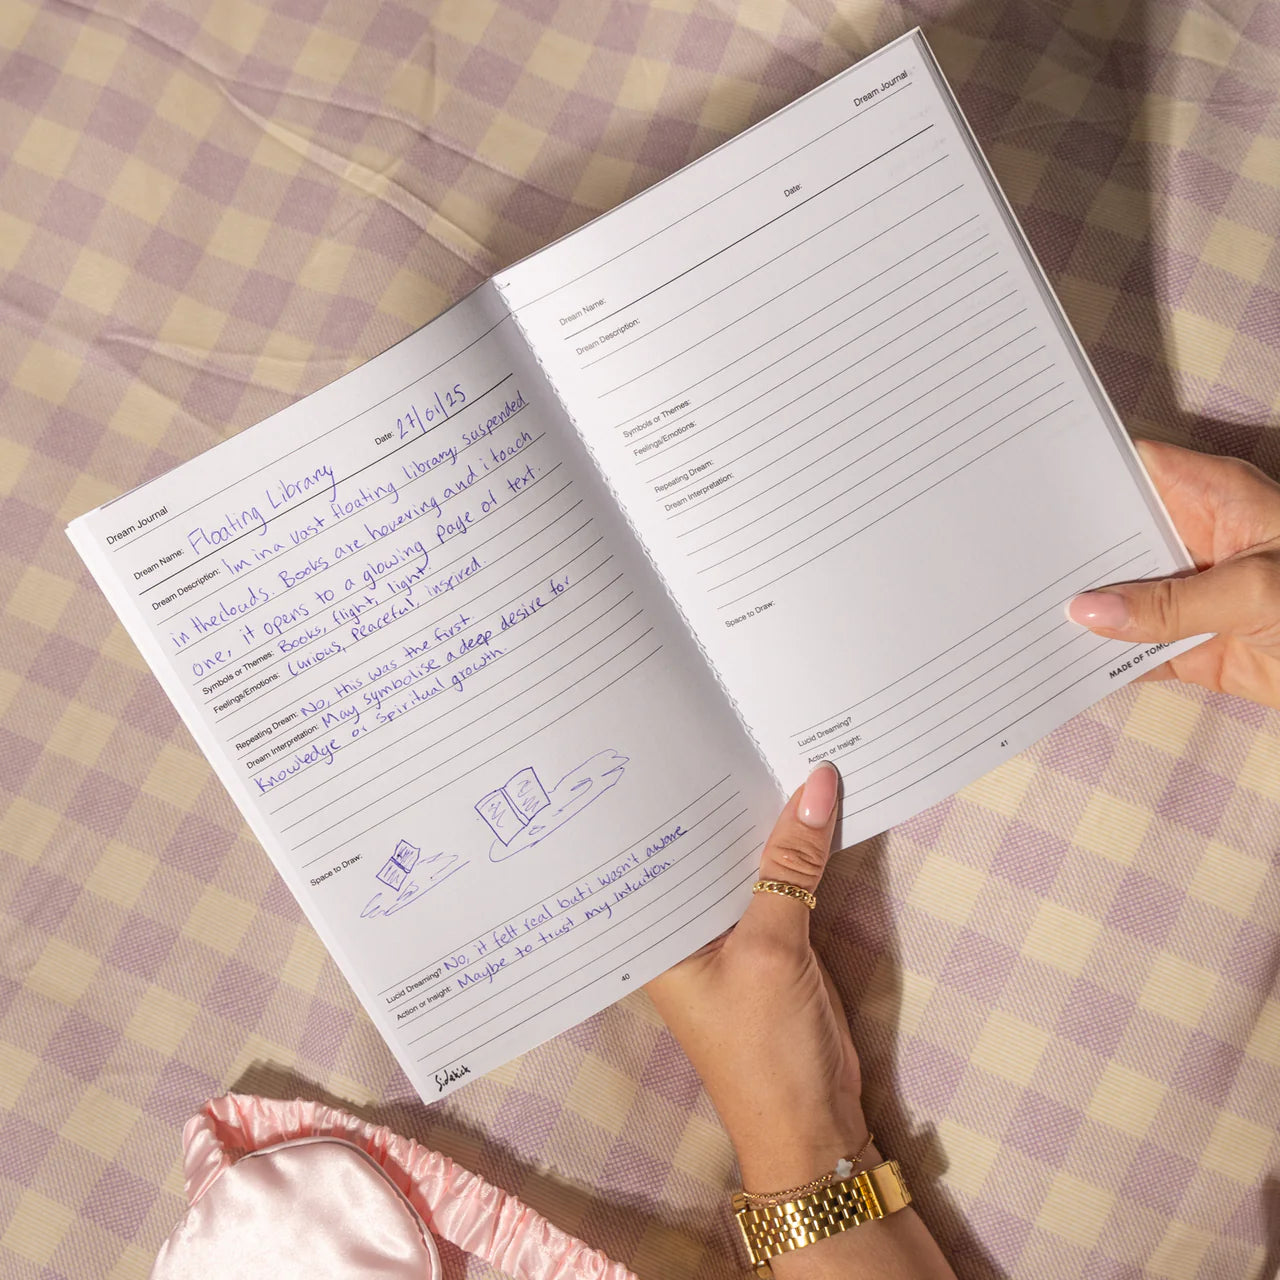 Dream Journal
Date: 27/01/25
Dream Name: Floating Library
Dream Description: I'm in a vast floating library, suspended
in the clouds. Books are hovering and i touch
one, it opens to a glowing page of text.
Symbols or Themes: Books, flight, light.
Feelings/Emotions: Curious, Peaceful, inspired.
Repeating Dream: No, this was the first.
Dream Interpretation: May symbolise a deep desire for
Knowledge or Spiritual growth.
Space to Draw:
Lucid Dreaming? No, it felt real but i wasn't aware
Action or Insight: Maybe to trust my intuition.
40
Sidekick
Dream Journal
Date:
Dream Name:
Dream Description:
Symbols or Themes:
Feelings/Emotions:
Repeating Dream:
Dream Interpretation:
Space to Draw:
Lucid Dreaming?
Action or Insight:
41
MADE OF